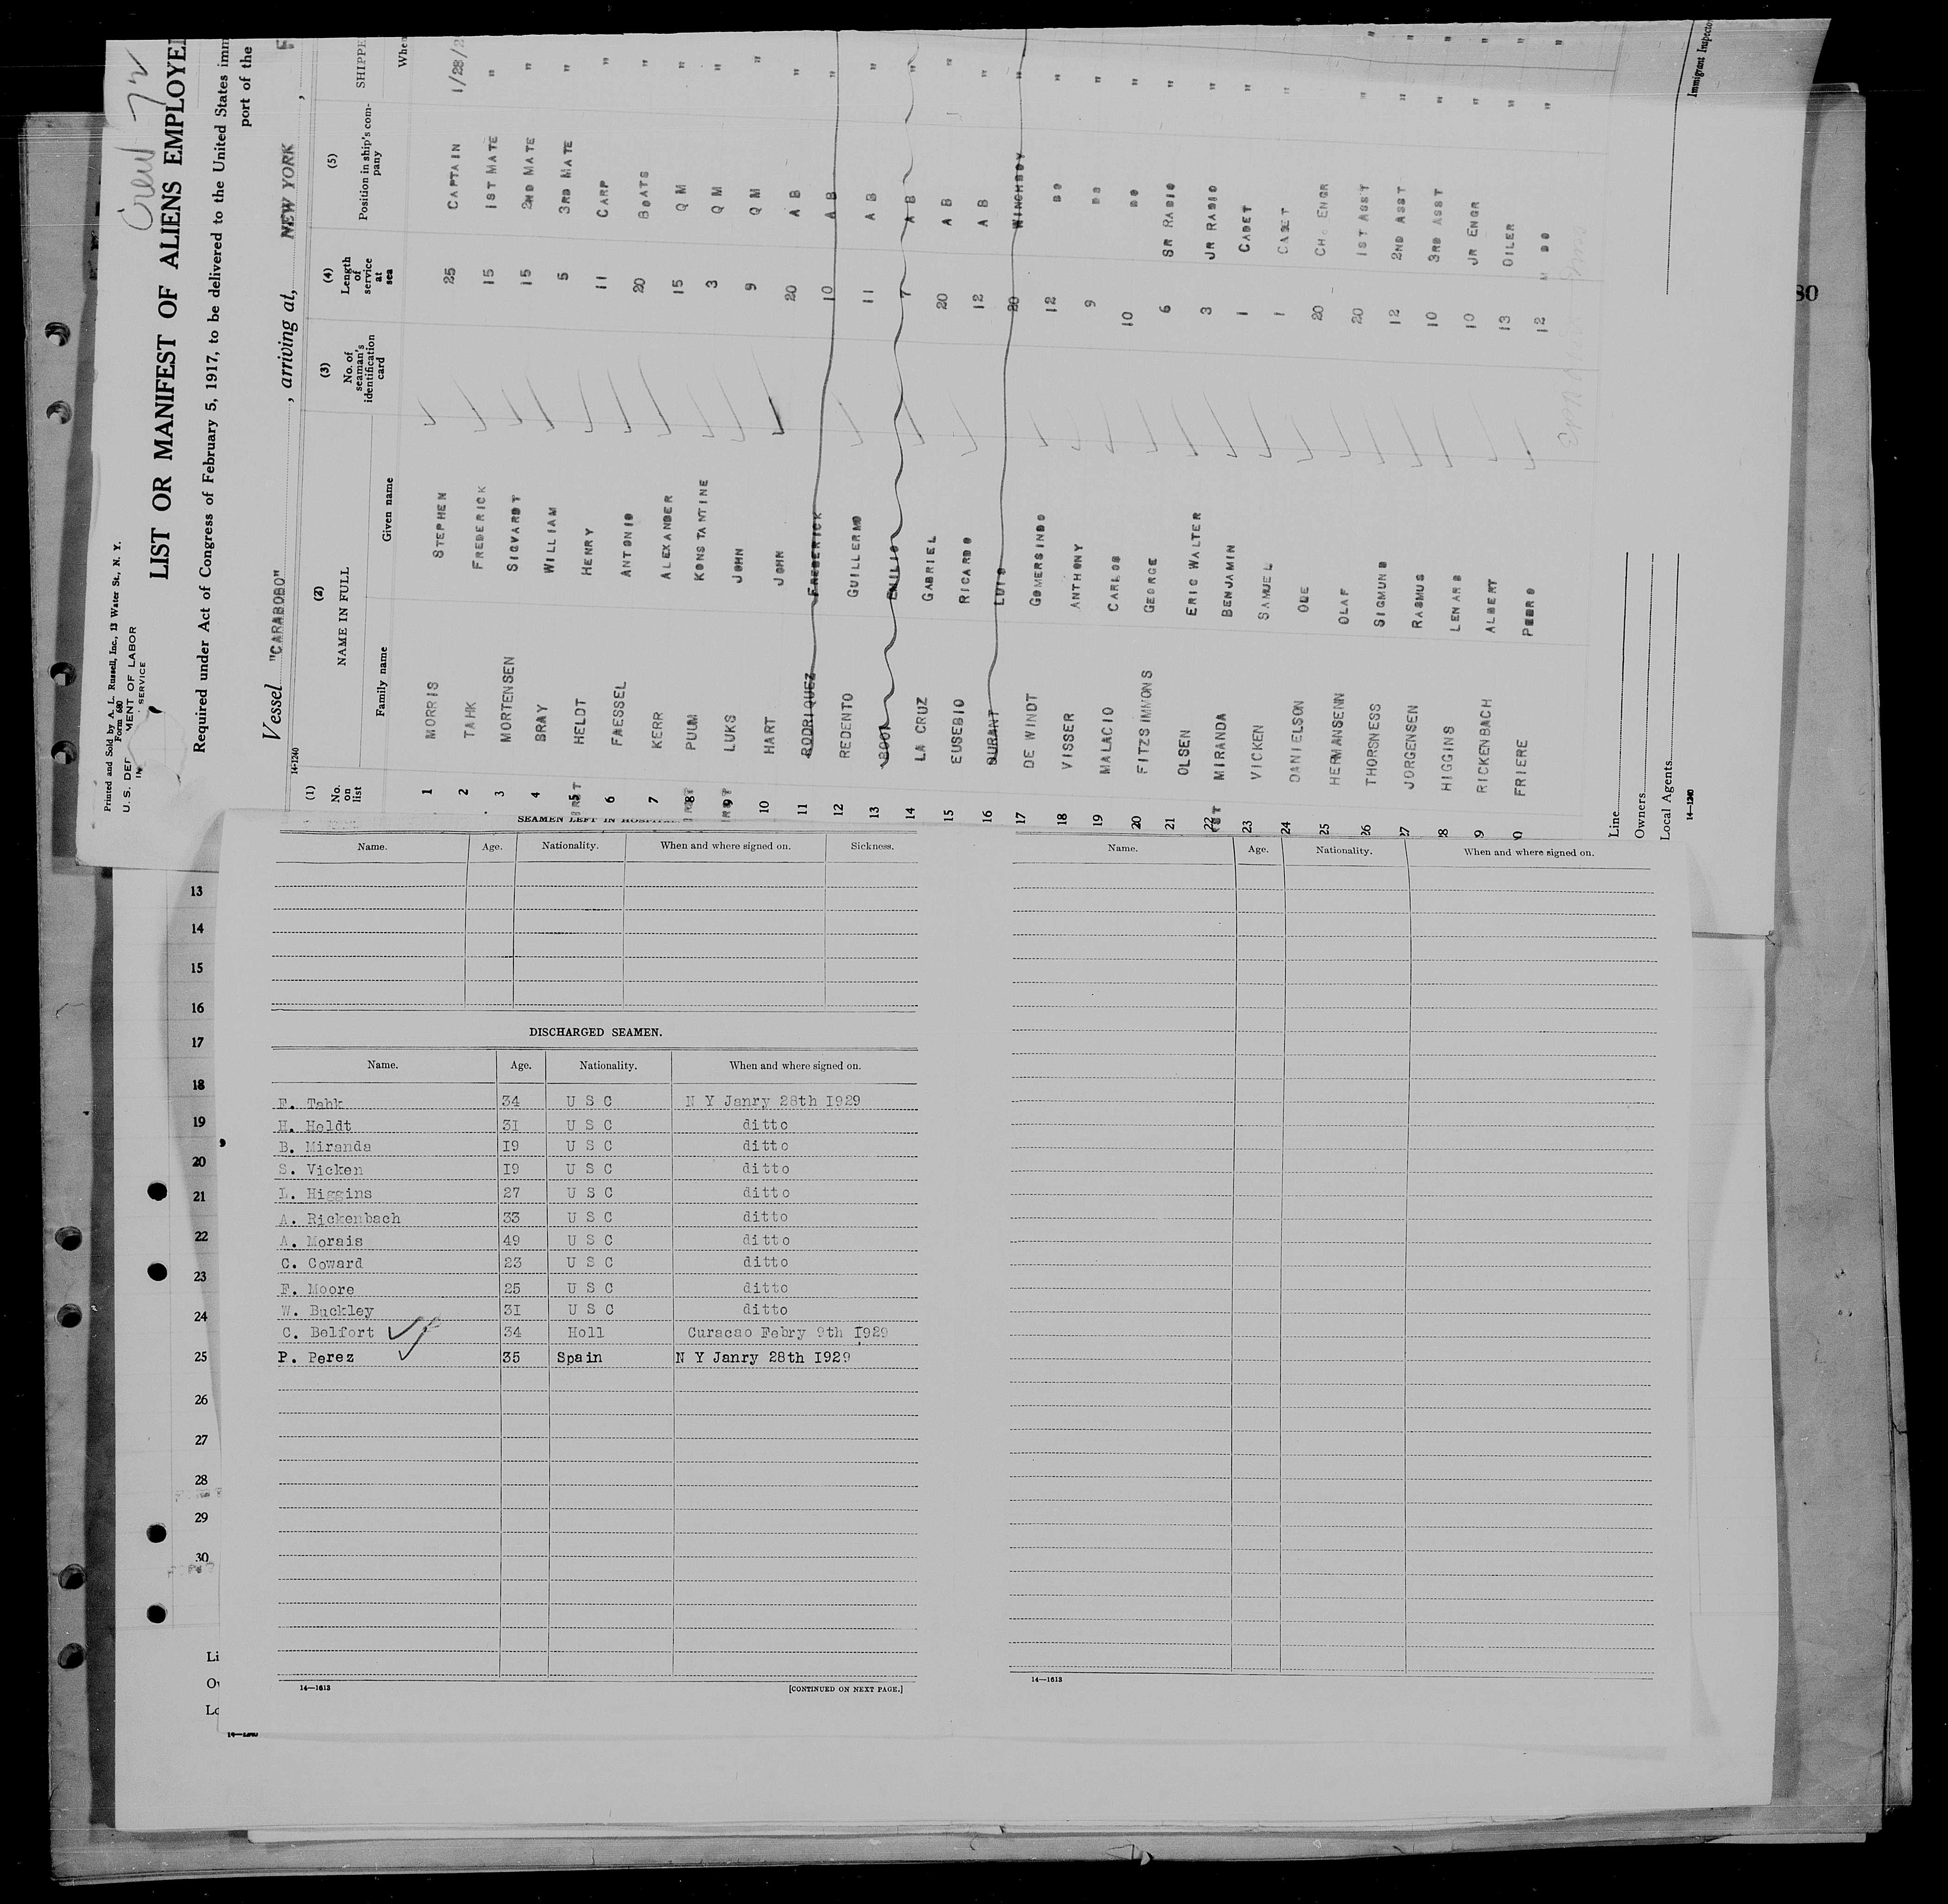 Crew
Printed and Sold by A. L. Russell, Inc., 13 Water St., N. Y.
Form 680
U. S. DEP MENT OF LABOR
SERVICE
LIST OR MANIFEST OF ALIENS EMPLOYE
Required under Act of Congress of February 5, 1917, to be delivered to the United States imm
port of the
Vessel "CARABOBO" , arriving at, NEW YORK ,
14-1240
(1) No. on list (2) NAME IN FULL Family name Given name (3) No. of seaman's identification card (4) Length of service at sea (5) Position in ship's company SHIPPE When
1 MORRIS STEPHEN 25 CAPTAIN 1/28/2
2 TAHK FREDERICK 15 1ST MATE "
3 MORTENSEN SIGVARDT 15 2ND MATE "
4 BRAY WILLIAM 5 3RD MATE "
5 HELDT HENRY 11 CARP "
6 FAESSEL ANTONIO 20 BOATS "
7 KERR ALEXANDER 15 Q M "
8 PUUM KONSTANTINE 3 Q M "
9 LUKS JOHN 9 Q M "
10 HART JOHN 20 A B "
11 RODRIQUEZ FREDERICK 10 A B "
12 REDENTO GUILLERMO 11 A B "
13 EMILIO 7 A B "
14 LA CRUZ GABRIEL 20 A B "
15 EUSEBIO RICARDO 12 A B "
16 DURANT LUIS 20 WINCHBOY "
17 DE WINDT GOMERSINDO 12 DO "
18 VISSER ANTHONY 9 DO "
19 MALACIO CARLOS 10 DO "
20 FITZSIMMONS GEORGE 6 SR RADIO "
21 OLSEN ERIC WALTER 3 JR RADIO "
22 MIRANDA BENJAMIN 1 CADET "
23 VICKEN SAMUEL 1 CADET "
24 DANIELSON OLE 20 CH. ENGR
25 HERMANSENN OLAF 20 1ST ASST "
26 THORSNESS SIGMUND 12 2ND ASST "
27 JORGENSEN RASMUS 10 3RD ASST "
28 HIGGINS LENARD 10 JR ENGR "
9 RICKENBACH ALBERT 13 OILER "
0 FRIERE PEDRO 12 DO "
Line
Owners
Local Agents
14-1240
Immigrant Inspector
80
SEAMEN LEFT IN HOSPITAL
Name. Age. Nationality. When and where signed on. Sickness.
Name. Age. Nationality. When and where signed on.
DISCHARGED SEAMEN.
Name. Age. Nationality. When and where signed on.
F. Tahk 34 U S C N Y Janry 28th 1929
H. Heldt 31 U S C ditto
B. Miranda 19 U S C ditto
S. Vicken 19 U S C ditto
L. Higgins 27 U S C ditto
A. Rickenbach 33 U S C ditto
A. Morais 49 U S C ditto
C. Coward 23 U S C ditto
F. Moore 25 U S C ditto
W. Buckley 31 U S C ditto
C. Belfort 34 Holl Curacao Febry 9th 1929
P. Perez 35 Spain N Y Janry 28th 1929
14—1613
[CONTINUED ON NEXT PAGE.]
14—1613
13
14
15
16
17
18
19
20
21
22
23
24
25
26
27
28
29
30
Li
Ow
Lo